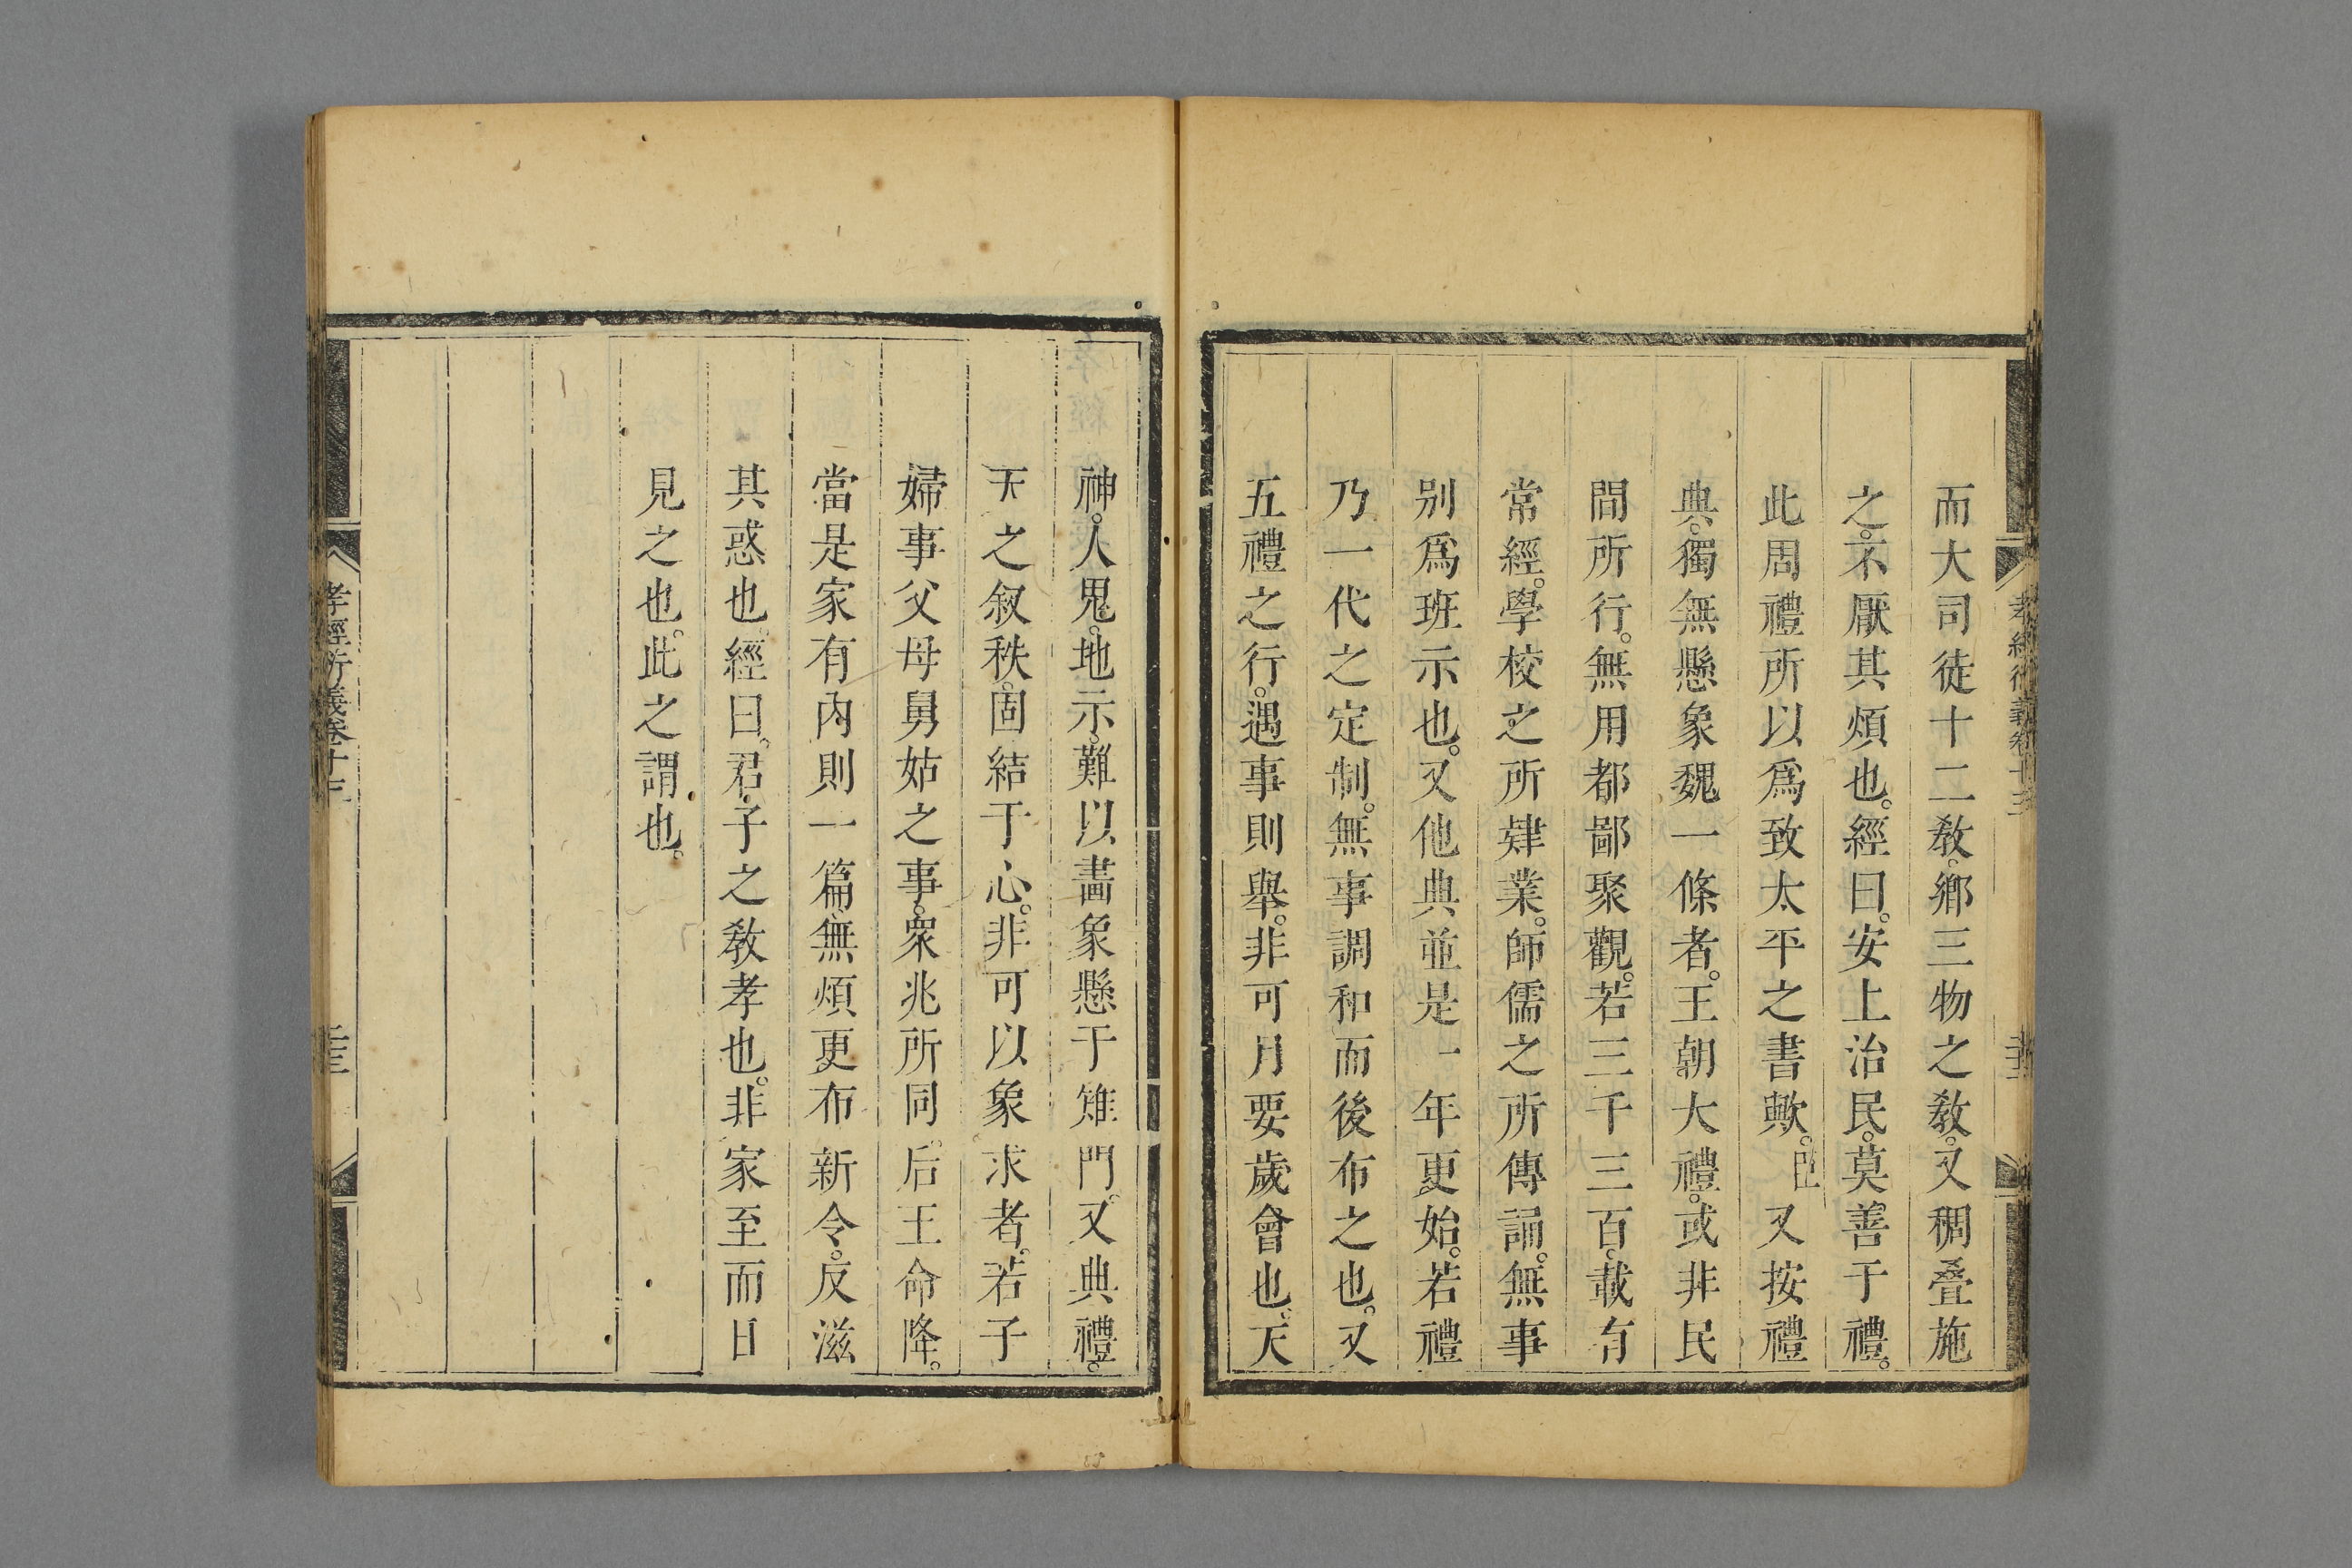 而大司徒十二教。鄉三物之教。又稠叠施
之。不厭其煩也。經曰。安上治民。莫善于禮。
此周禮所以爲致太平之書歟。臣又按禮
典。獨無懸象魏一條者。王朝大禮。或非民
間所行。無用都鄙聚觀。若三千三百。載有
常經。學校之所肄業。師儒之所傳誦。無事
别爲班示也。又他典並是一年更始。若禮
乃一代之定制。無事調和而後布之也。又
五禮之行。遇事則舉。非可月要歲會也。天
神。人鬼。地示。難以畵象懸于雉門。又典禮。
天之叙秩。固結于心。非可以象求者。若子
婦事父母舅姑之事。衆兆所同。后王命降。
當是家有內則一篇。無煩更布新令。反滋
其惑也。經曰。君子之敎孝也。非家至而日
見之也。此之謂也。
孝經衍義卷十三